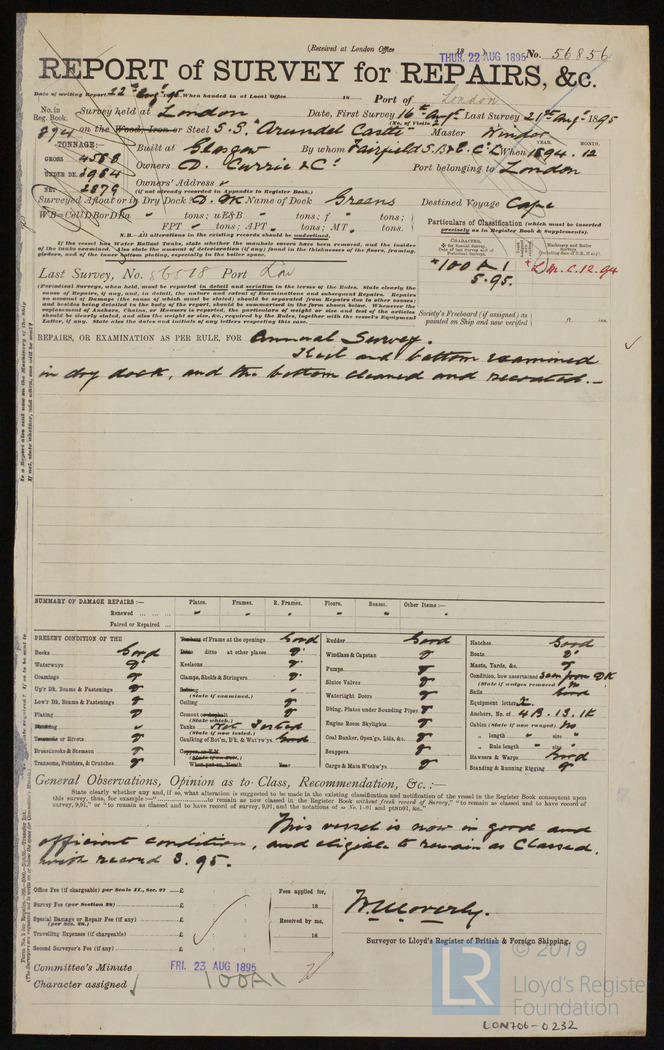 (Received at London Office
THUR. 22 AUG 1895 No. 56856
REPORT of SURVEY for REPAIRS, &c.
Date of writing Report 22nd Aug 1895 When handed in at Local Office 18 Port of London
No. in Reg. Book. Survey held at London Date, First Survey 16th Aug. Last Survey 21st Aug 1895
(No. of Visits 2)
894 on the Wood, Iron or Steel S.S. "Arundel Castle" Master Winder
TONNAGE:— Built at Glasgow By whom Fairfield S.B. & E. Co. Ld When 1894. 12
YEAR. MONTH.
GROSS 4588 Owners D. Currie & Co. Port belonging to London
UNDER DK. 3964
NET 2879 Owners' Address
(if not already recorded in Appendix to Register Book.)
Surveyed Afloat or in Dry Dock? D. DK Name of Dock Greens Destined Voyage Cape
WB=CellDBorDBa " tons; uE&B " tons; f " tons;
FPT " tons; APT " tons; MT " tons.
Particulars of Classification (which must be inserted precisely as in Register Book & Supplements).
N.B.—All alterations in the existing records should be underlined.
If the vessel has Water Ballast Tanks, state whether the manhole covers have been removed, and the insides of the tanks examined. Also state the amount of deterioration (if any) found in the thicknesses of the floors, framing, girders, and of the inner bottom plating, especially in the boiler space.
CHARACTER.
Machinery and Boiler Surveys
+100 A 1
5.95.
+L.M.C. 12.94
Last Survey, No. 56518 Port Lon
(Periodical Surveys, when held, must be reported in detail and seriatim in the terms of the Rules. State clearly the cause of Repairs, if any, and, in detail, the nature and extent of Examinations and subsequent Repairs. Repairs on account of Damage (the cause of which must be stated) should be separated from Repairs due to other causes; and besides being detailed in the body of the report, should be summarised in the form shown below. Whenever the replacement of Anchors, Chains, or Hawsers is reported, the particulars of weight or size and test of the articles should be clearly stated, and also the weight or size, &c., required by the Rules, together with the vessel's Equipment Letter, if any. State also the dates and initials of any letters respecting this case.
Society's Freeboard (if assigned) as painted on Ship and now verified ft. ins.
REPAIRS, OR EXAMINATION AS PER RULE, FOR Annual Survey.
Keel and bottom examined
in dry dock, and the bottom cleaned and recoated.—
SUMMARY OF DAMAGE REPAIRS:— Plates. Frames. R. Frames. Floors. Beams. Other Items:—
Renewed
Faired or Repaired
PRESENT CONDITION OF THE
Decks Good
Waterways
Coamings
Up'r Dk. Beams & Fastenings
Low'r Dk. Beams & Fastenings
Plating
Planking
Treenails or Rivets
Breasthooks & Stemson
Transoms, Pointers, & Crutches
Timbers of Frame at the openings Good
Ditto ditto at other places
Keelsons
Clamps, Shelfs & Stringers
Salting
(State if examined.)
Ceiling
Cement or Asphalt
(State which.)
Tanks Not Tested
(State if now tested.)
Caulking of Bot'm, D'k, & Wat'rw'ys Good
Copper, or Y.M.
When put on, Month Year
Rudder Good
Windlass & Capstan
Pumps
Sluice Valves
Watertight Doors
Dblng. Plates under Sounding Pipes
Engine Room Skylights
Coal Bunker, Open'gs, Lids, &c.
Scuppers
Cargo & Main H'tchw'ys
Hatches Good
Boats
Masts, Yards, &c.
Condition, how ascertained Seen from DK
(State if wedges removed) No
Sails Good
Equipment letter
Anchors, No. of 4 B. 1 S. 1 K
Cables (State if now ranged) No
„ length size
„ Rule length size
Hawsers & Warps Good
Standing & Running Rigging
General Observations, Opinion as to Class, Recommendation, &c.:—
State clearly whether any and, if so, what alteration is suggested to be made in the existing classification and notification of the vessel in the Register Book consequent upon this survey, thus, for example:—"..........to remain as now classed in the Register Book without fresh record of Survey," "to remain as classed and to have record of survey, 9,91," or "to remain as classed and to have record of survey, 9,91, and the notations of ss No. 1-91 and ptND91, &c."
This vessel is now in good and
efficient condition, and eligible to remain as Classed,
with record 8. 95.
Office Fee (if chargeable) per Scale II., Sec. 27 £
Survey Fee (per Section 28) £
Special Damage or Repair Fee (if any) £
(per Sec. 28.)
Travelling Expenses (if chargeable) £
Second Surveyor's Fee (if any) £
Fees applied for,
18
Received by me,
18
W. Moverly.
Surveyor to Lloyd's Register of British & Foreign Shipping.
Committee's Minute FRI. 23 AUG 1895
Character assigned 100A1
© 2019
LR
Lloyd's Register
Foundation
LON706-0232